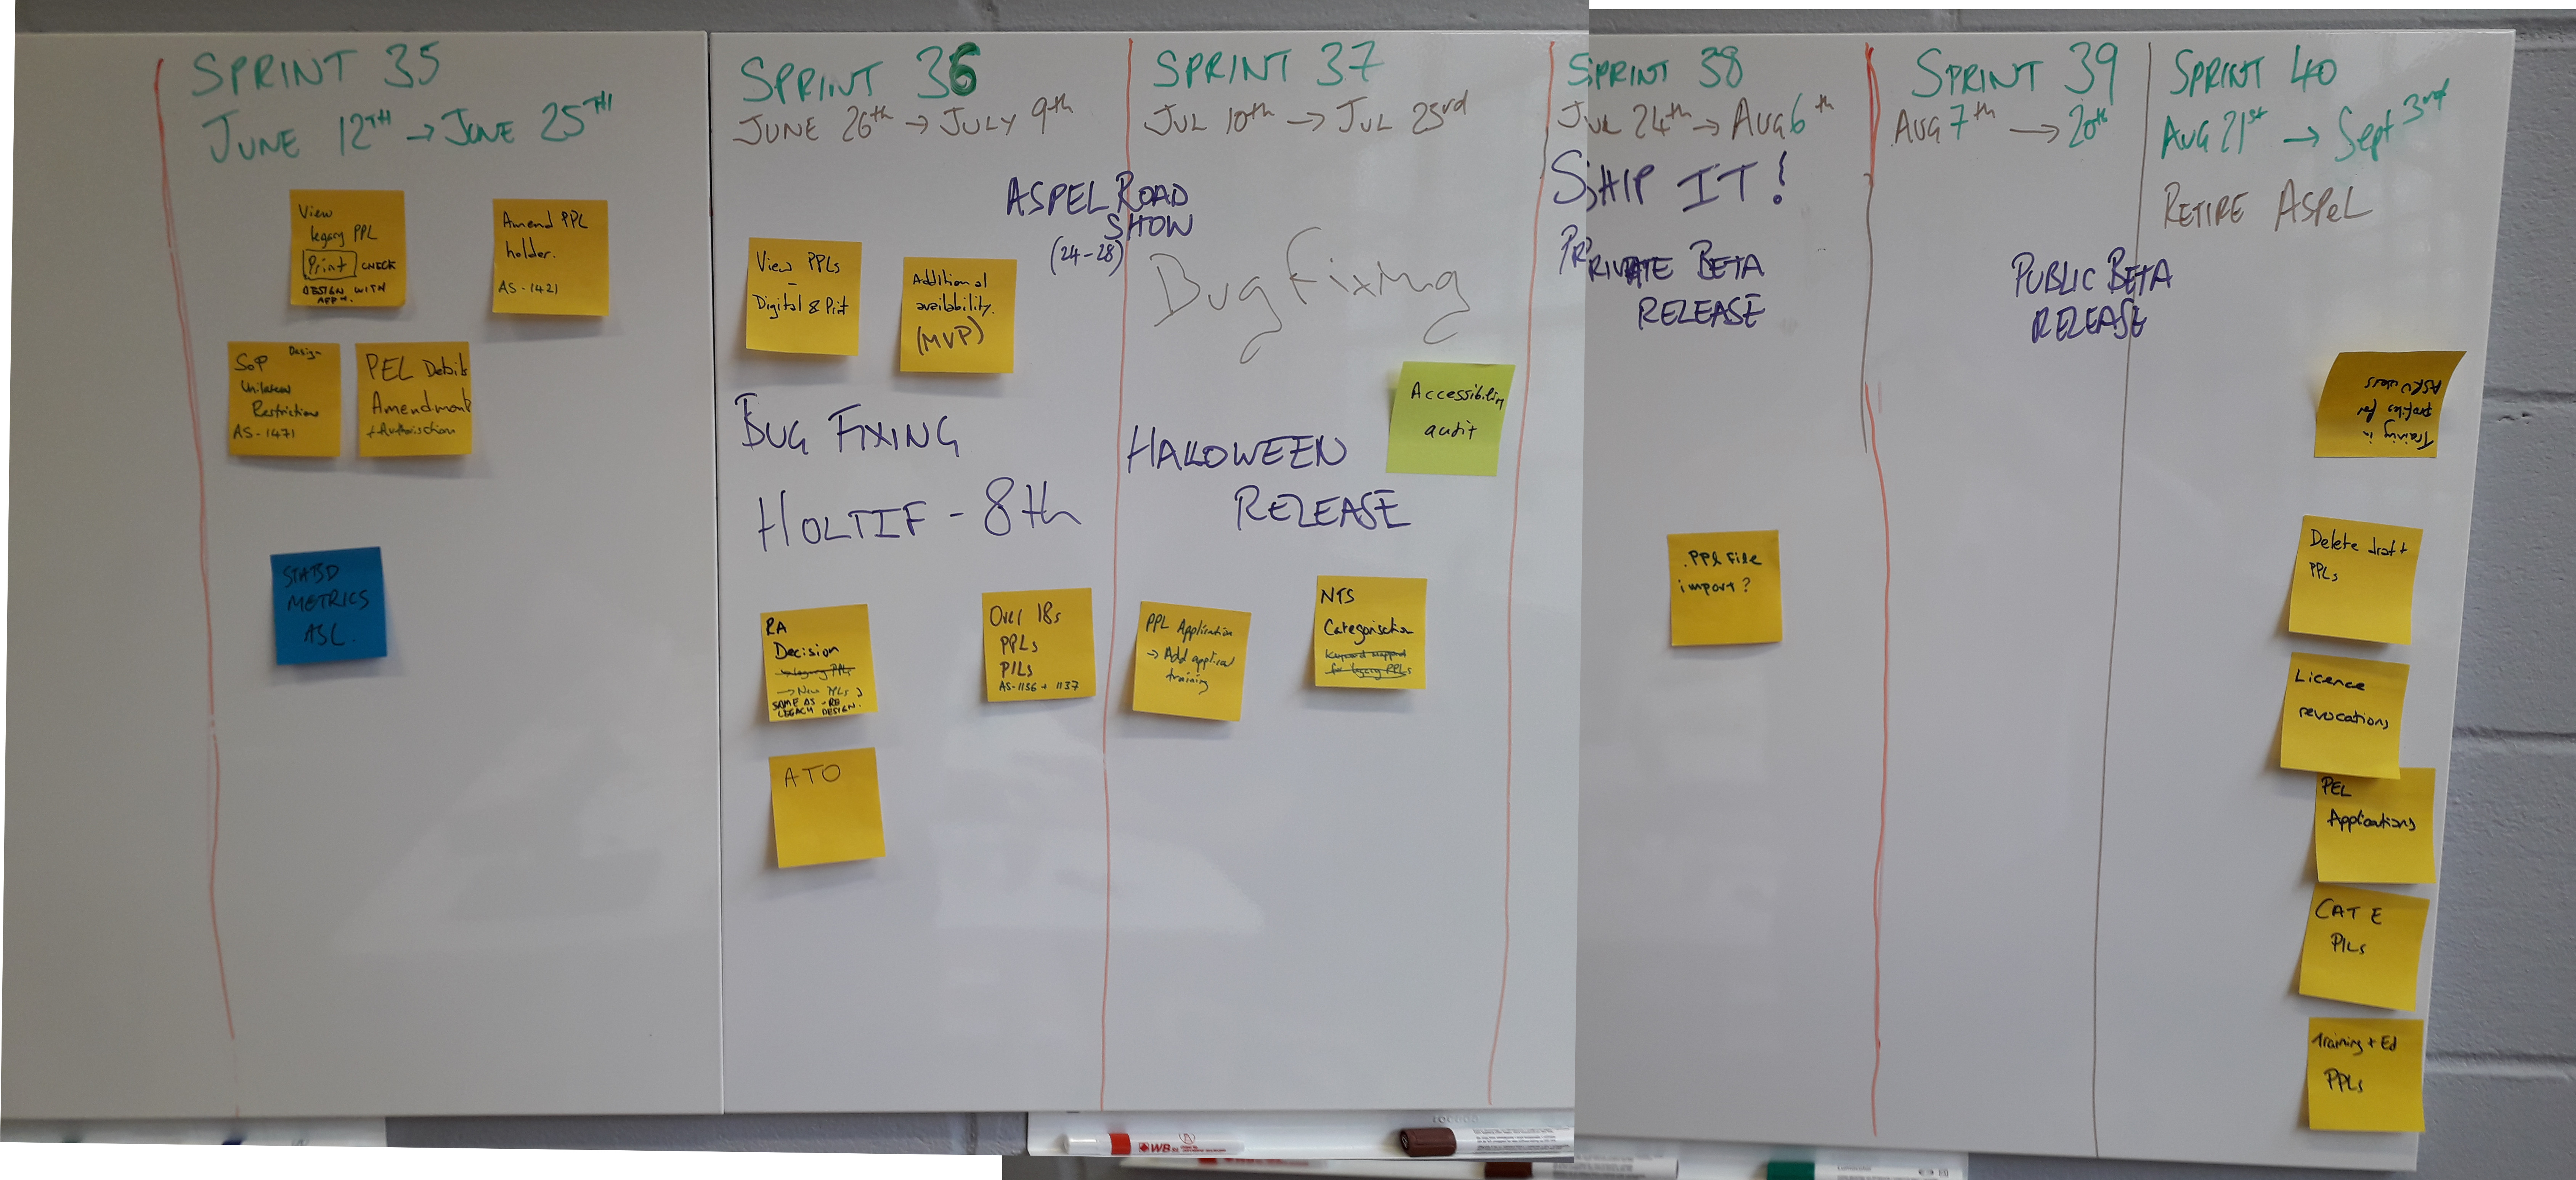 SPRINT 35
JUNE 12TH → JUNE 25TH
View
legacy PPL
Print CHECK
DESIGN WITH
Amend PPL
holder.
AS-1421
SoP Design
Unilateral
Restriction
AS-1471
PEL Debits
Amendment
METRICS
ASL.
SPRINT 36
JUNE 26th → JULY 9th
ASPEL ROAD
SHOW
(24-28)
View PPLs
-
Digital & Print
Additional
availability.
(MVP)
BUG FIXING
HOLTIF - 8th
RA
Decision
→ New PPLs
SAME AS - RE
LEGACY DESIGN.
Over 18s
PPLs
PILs
AS-1136 + 1137
ATO
SPRINT 37
JUL 10th → JUL 23rd
Bug Fixing
Accessibility
audit
HALLOWEEN
RELEASE
PPL Application
→ Add
training
NTS
Categorisation
Keyword mapped
for legacy PPLs
SPRINT 38
JUL 24th → AUG 6th
SHIP IT!
PRIVATE BETA
RELEASE
.PPL File
import?
SPRINT 39
AUG 7th → 20th
PUBLIC BETA
RELEASE
SPRINT 40
AUG 21st → Sept 3rd
RETIRE ASPeL
Training in
profiles for
ASRU users
Delete draft
PPLs
Licence
revocations
PEL
Applications
CAT E
PILs
Training + Ed
PPLs
WB